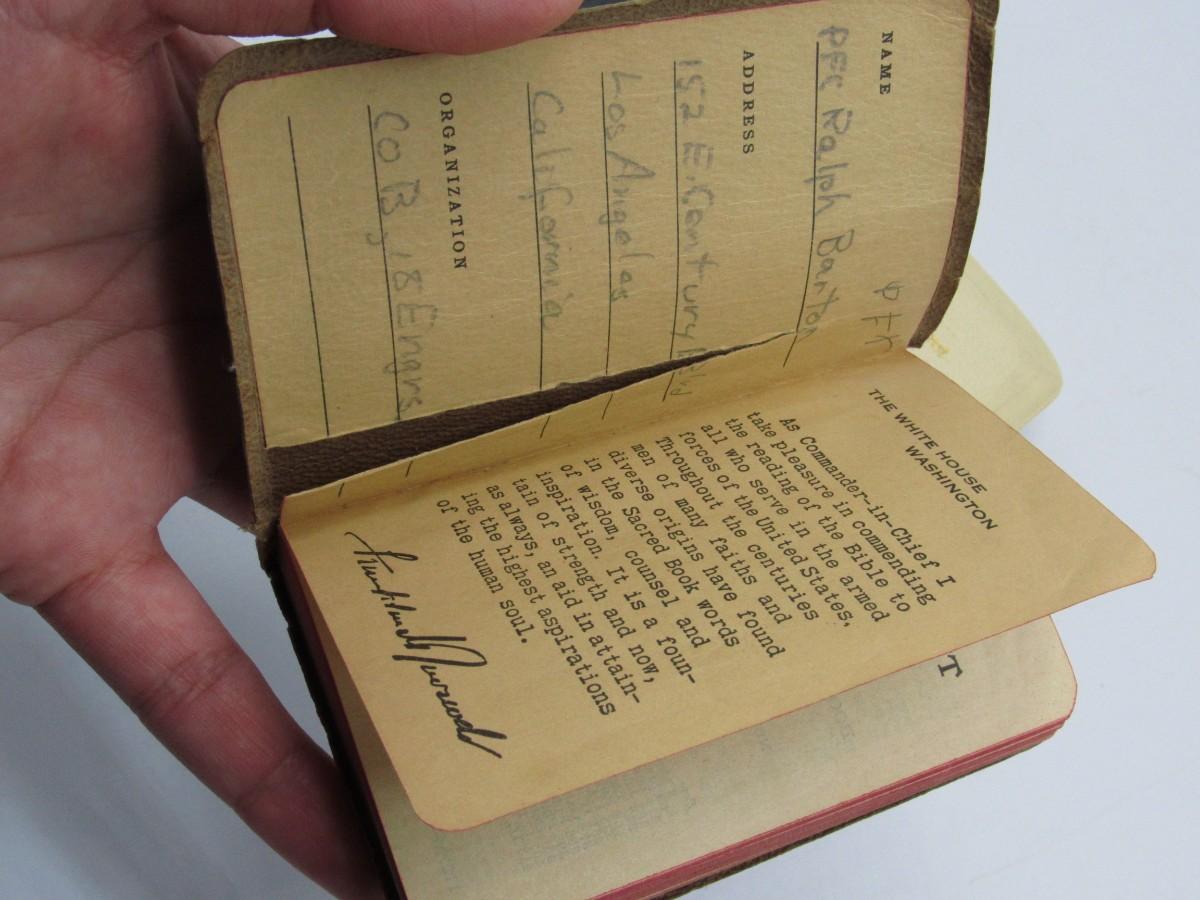 NAME
PFC Ralph Barton
ADDRESS
152 E. Century Blvd
Los Angeles
California
ORGANIZATION
Co B, 18 Engrs
THE WHITE HOUSE
WASHINGTON
As Commander-in-Chief I
take pleasure in commending
the reading of the Bible to
all who serve in the armed
forces of the United States.
Throughout the centuries
men of many faiths and
diverse origins have found
in the Sacred Book words
of wisdom, counsel and
inspiration. It is a foun-
tain of strength and now,
as always, an aid in attain-
ing the highest aspirations
of the human soul.
Franklin D Roosevelt
T